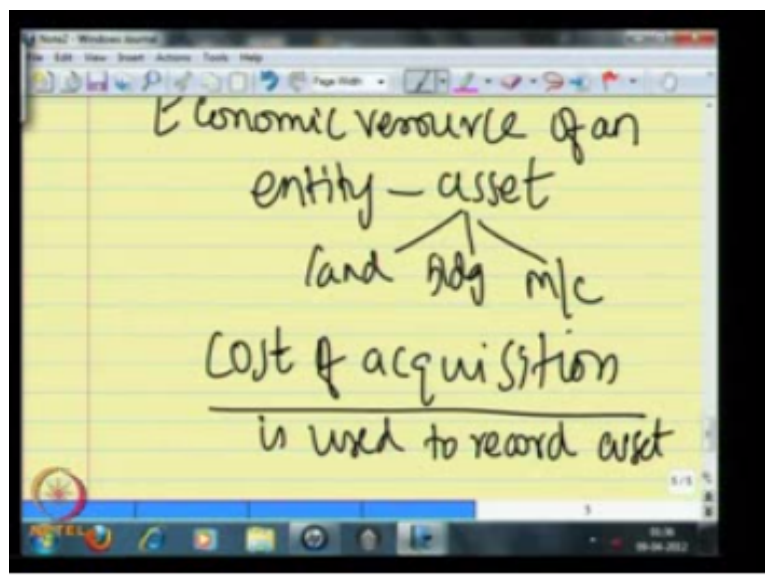 Note2 - Windows Journal
File Edit View Insert Actions Tools Help
Page Width
Economic resource of an
entity – asset
land Bldg m/c
Cost of acquisition
is used to record asset
5/5
5
NPTEL
09-04-2012